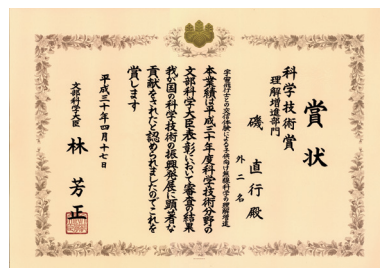 賞状
科学技術賞
理解増進部門
磯 直行 殿
外二名
宇宙飛行士との交信体験による子供向け無線科学の理解増進
本業績は平成三十年度科学技術分野の
文部科学大臣表彰において審査の結果
我が国の科学技術の振興発展に顕著な
貢献をされたと認められましたのでこれを
賞します
平成三十年四月十七日
文部科学大臣 林 芳正